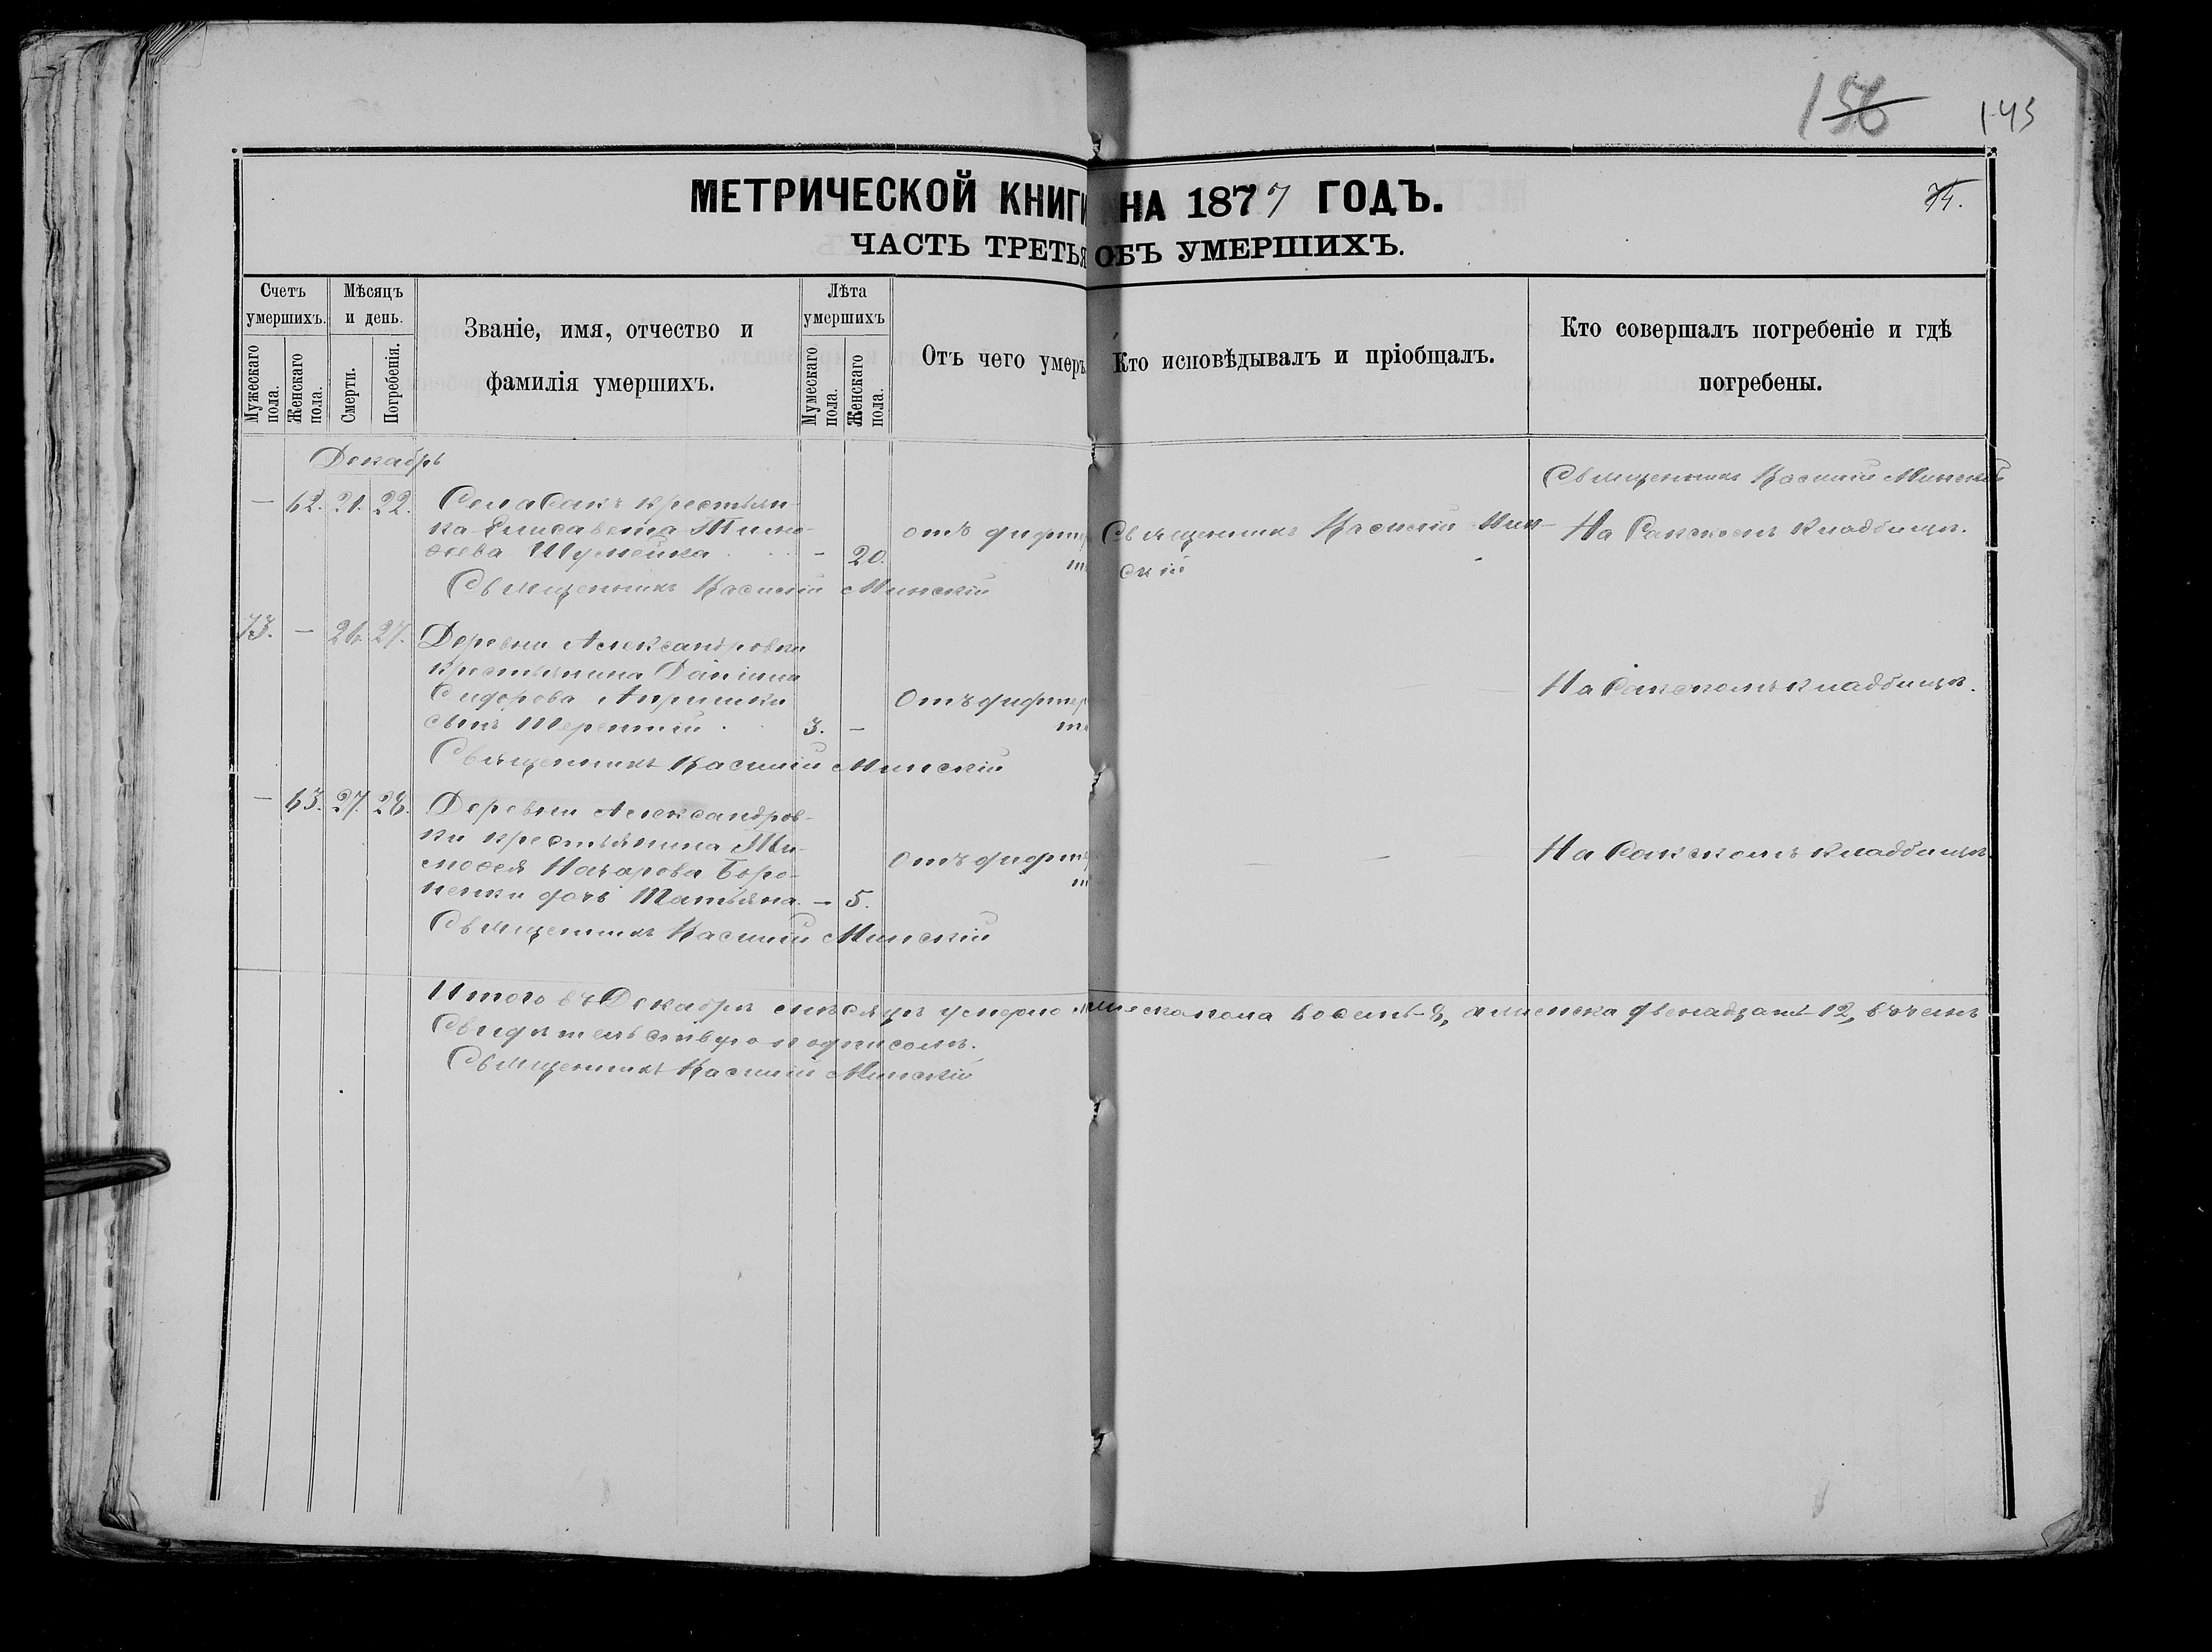 156 143
МЕТРИЧЕСКОЙ КНИГИ НА 1877 ГОДЪ.
74.
ЧАСТЬ ТРЕТЬЯ ОБЪ УМЕРШИХЪ.
Счетъ умершихъ.
Мужескаго пола.
Женскаго пола.
Мѣсяцъ и день.
Смерти.
Погребенія.
Званіе, имя, отчество и
фамилія умершихъ.
Лѣта умершихъ
Мужескаго пола.
Женскаго пола.
Отъ чего умеръ
Кто исповѣдывалъ и пріобщалъ.
Кто совершалъ погребеніе и гдѣ
погребены.
Декабрь
Священникъ Василій Минскій
— 62. 21. 22. Села Сакъ крестьян-
ка Елисавета Тимо-
ѳеева Шумейка - 20.
отъ дифте
т
Священникъ Василій Мин-
скій
На Сакскомъ кладбищѣ.
Священникъ Василій Минскій
73. — 26. 27. Деревни Александровки
крестьянина Даніила
Сидорова
сынъ Терентій 3. —
Отъ дифтер
т
На Сакскомъ кладбищѣ.
Священникъ Василій Минскій
— 63. 27. 28. Деревни Александров-
ки крестьянина Ти-
моѳея Назарова Боро-
ненки дочь Татьяна. — 5.
Отъ дифте
т
На Сакскомъ кладбищѣ.
Священникъ Василій Минскій
Итого въ Декабрѣ мѣсяцѣ умерло мужеска пола восемь 8, а женска двенадцать 12, въ чемъ
Свидѣтельствую подписомъ.
Священникъ Василій Минскій